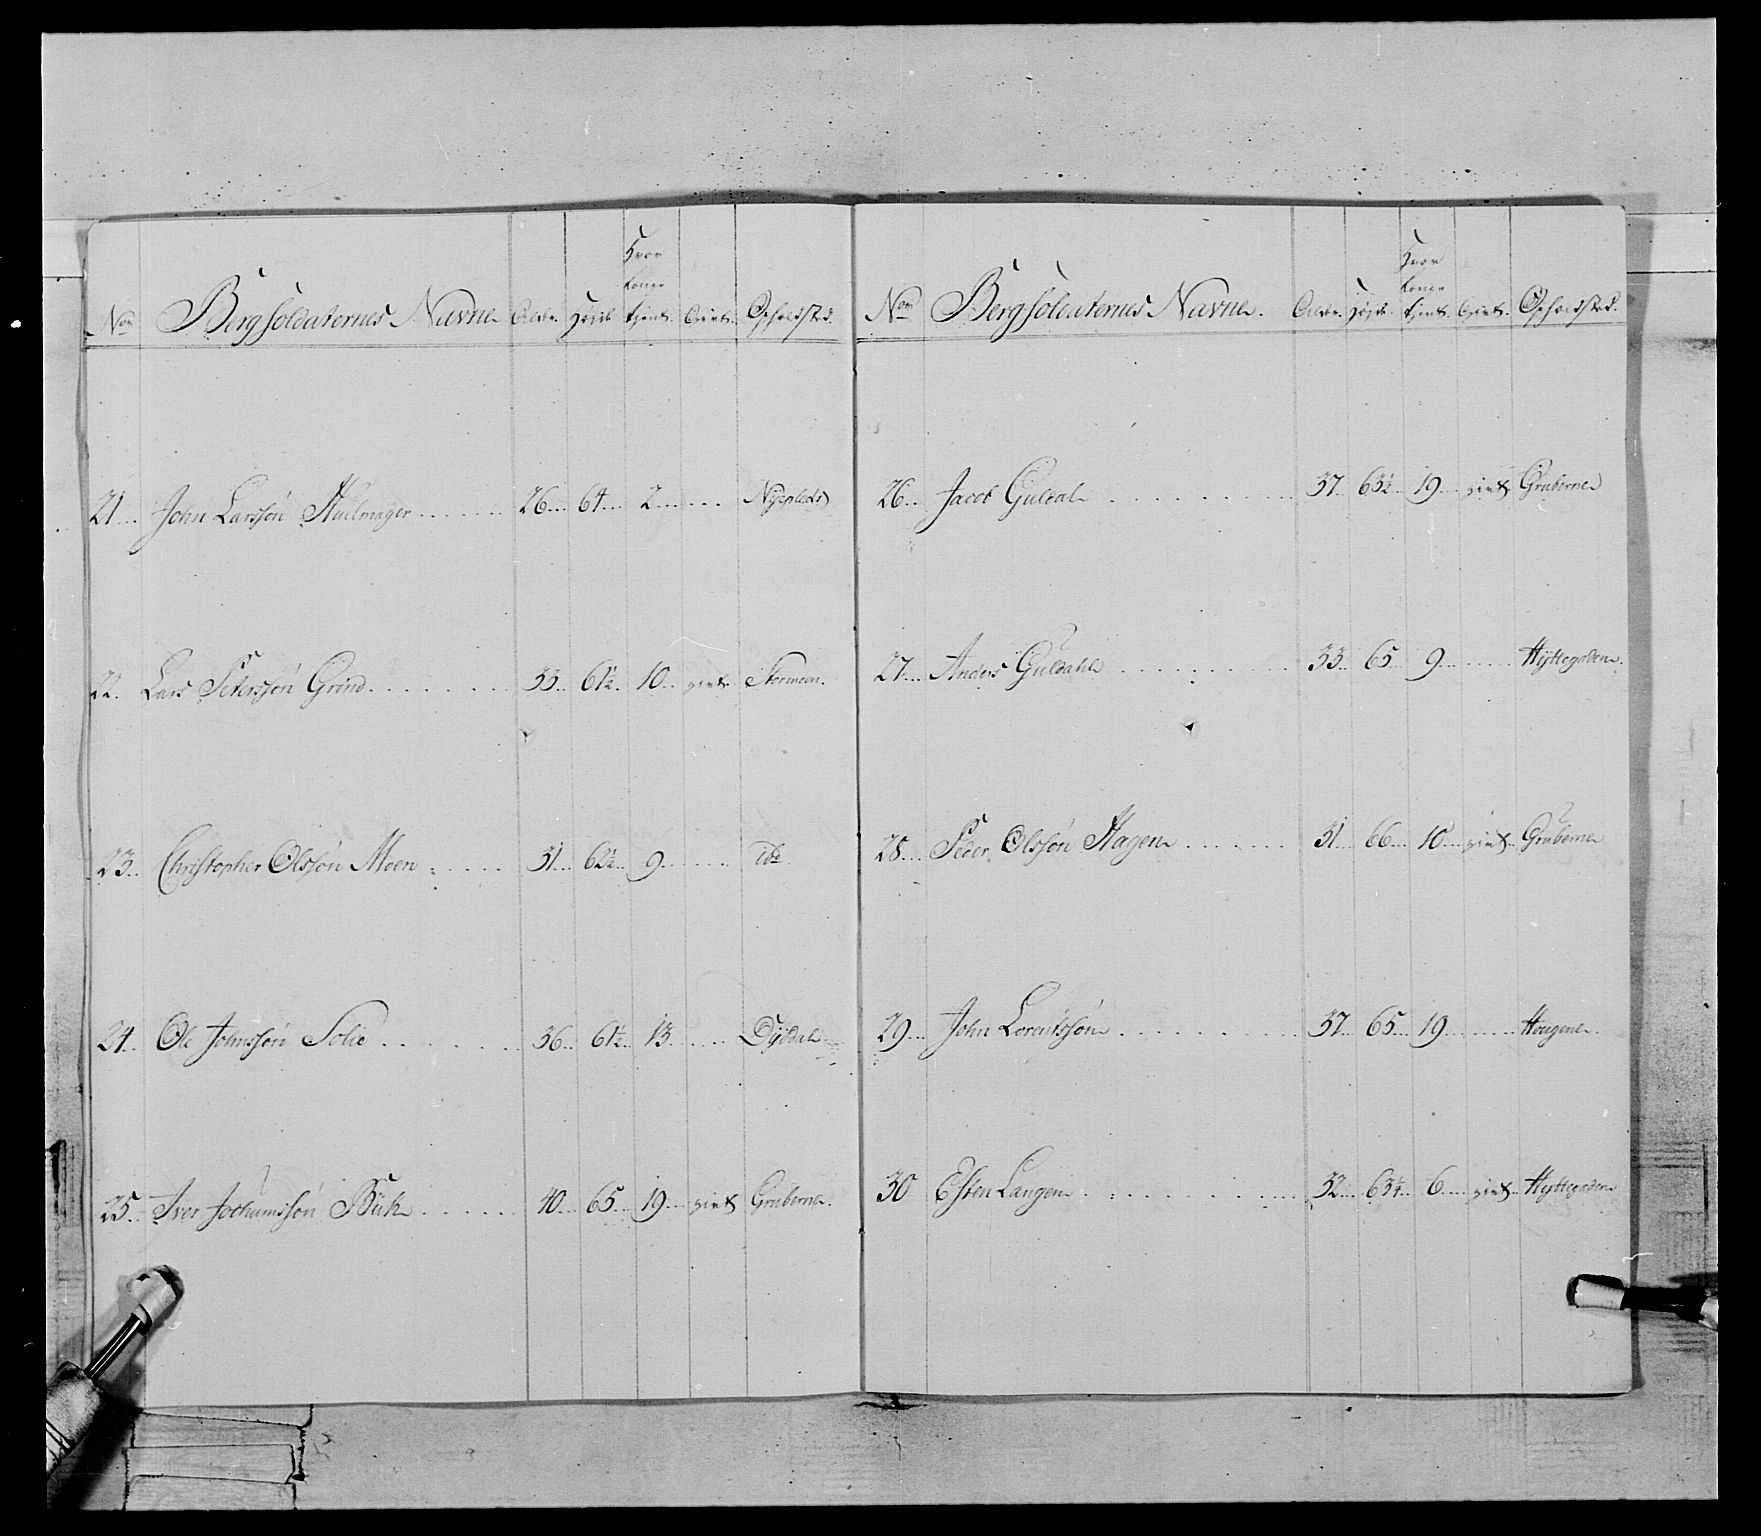 Hvor
Længe
Nor Bergsoldaternes Navne Alder. Højde tjent. Givt. Opholdsted.
21 John Larssøn Hiulmager 26 64 2 Nyeplads
22. Lars Peterssøn Grind 33 61½ 10 givt Stormoen.
23 Christopher Olssøn Moen 31 62½ 9 ibd
24 Ole Johnssøn Solie 36 61½ 13 Dybdal
25 Iver Jochumssøn Büch 40 65 19 givt Gruberne.
Hvor
Længe
Nor Bergsoldaternes Navne. Alder. Højde. tjent. Givt. Opholdsted.
26 Jacob Guldal 37 63½ 19 givt Gruberne
27 Anders Guldahl 33 65 9 Hyttegaden.
28 Peder Olssøn Hagen 31 66 10 givt Gruberne
29 John Lorentssøn 37 65 19 Hougene
30 Esten Langen 32 63¼ 6 givt Hyttegaden